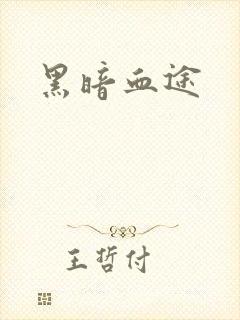 黑暗血途
王哲付